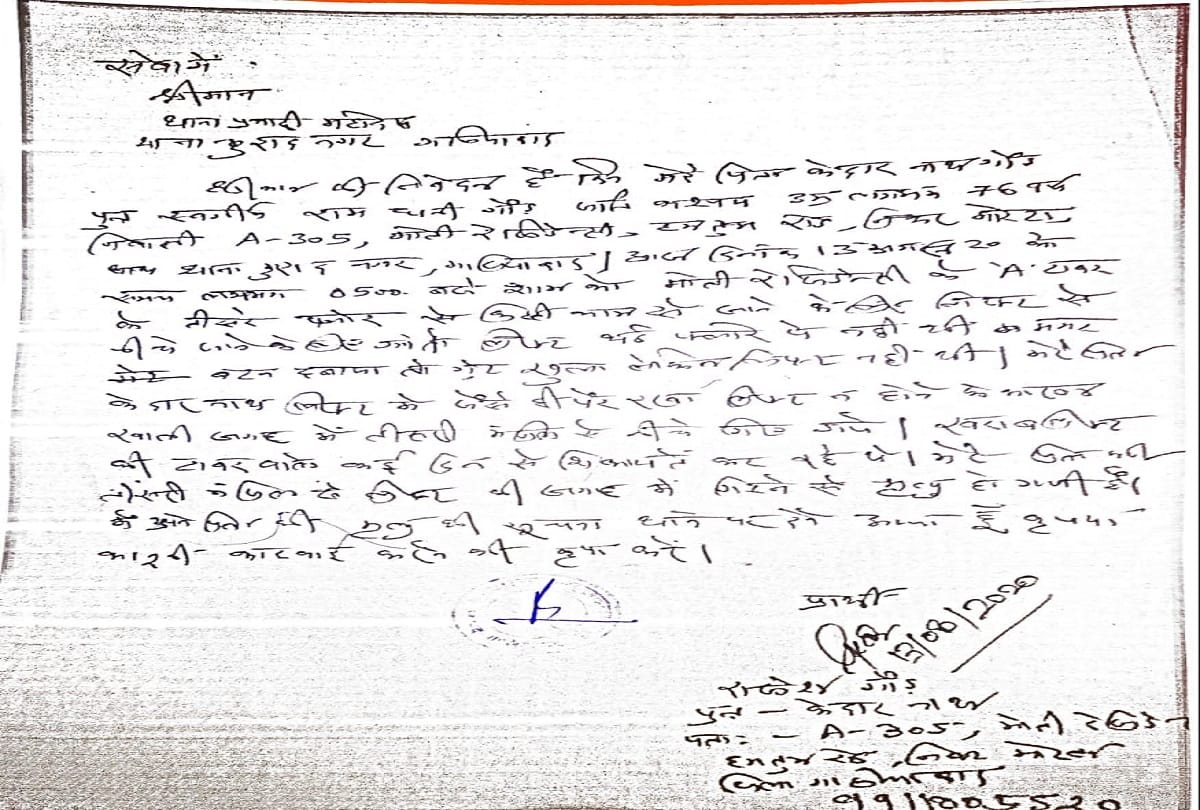 सेवा में
श्रीमान
थाना प्रभारी
थाना मुराद नगर गाजियाबाद
श्रीमान जी निवेदन है कि मेरे पिता केदार नाथ गौड़
पुत्र स्वर्गीय राम धनी गौड़ जाति उम्र लगभग 76 वर्ष
निवासी A-305, मोती रेजिडेन्सी, हम तुम रोड, निकट मोरटा
थाना मुराद नगर, गाजियाबाद। आज दिनांक 13 अगस्त 20 के
समय लगभग 0500 बजे शाम को मोती रेजिडेन्सी के 'A' टावर
के तीसरे फ्लोर से किसी काम से जाने के लिए लिफ्ट से
नीचे जाने के लिए लिफ्ट थर्ड फ्लोर पे नहीं थी मगर
बटन दबाया तो गेट खुला लेकिन लिफ्ट नहीं थी। मेरे पिता
केदार नाथ लिफ्ट में जैसे ही पैर रखा लिफ्ट न होने के कारण
खाली जगह में तीसरी मंजिल से नीचे गिर गये। खराब लिफ्ट
की टावर वाले कई दिन से शिकायतें कर रहे थे। मेरे पिता की
तीसरी मंजिल से लिफ्ट की जगह में गिरने से मृत्यु हो गयी है।
मैं अपने पिता की मृत्यु की सूचना थाने पर देने आया हूँ कृपया
कानूनी कारवाई करने की कृपा करें।
प्रार्थी
13/08/2020
राकेश गौड़
पुत्र - केदार नाथ
पता: - A-305, मोती रेजिडेन
हम तुम रोड, निकट मोरटा
जिला गाजियाबाद